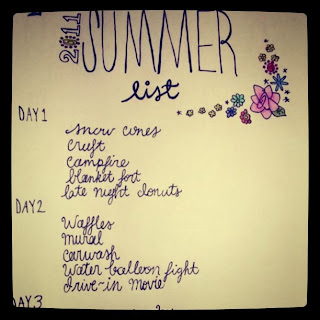 2011 SUMMER
list
DAY 1
snow cones
craft
campfire
blanket fort
late night donuts
DAY 2
Waffles
mural
carwash
Water balloon fight
drive-in movie
DAY 3